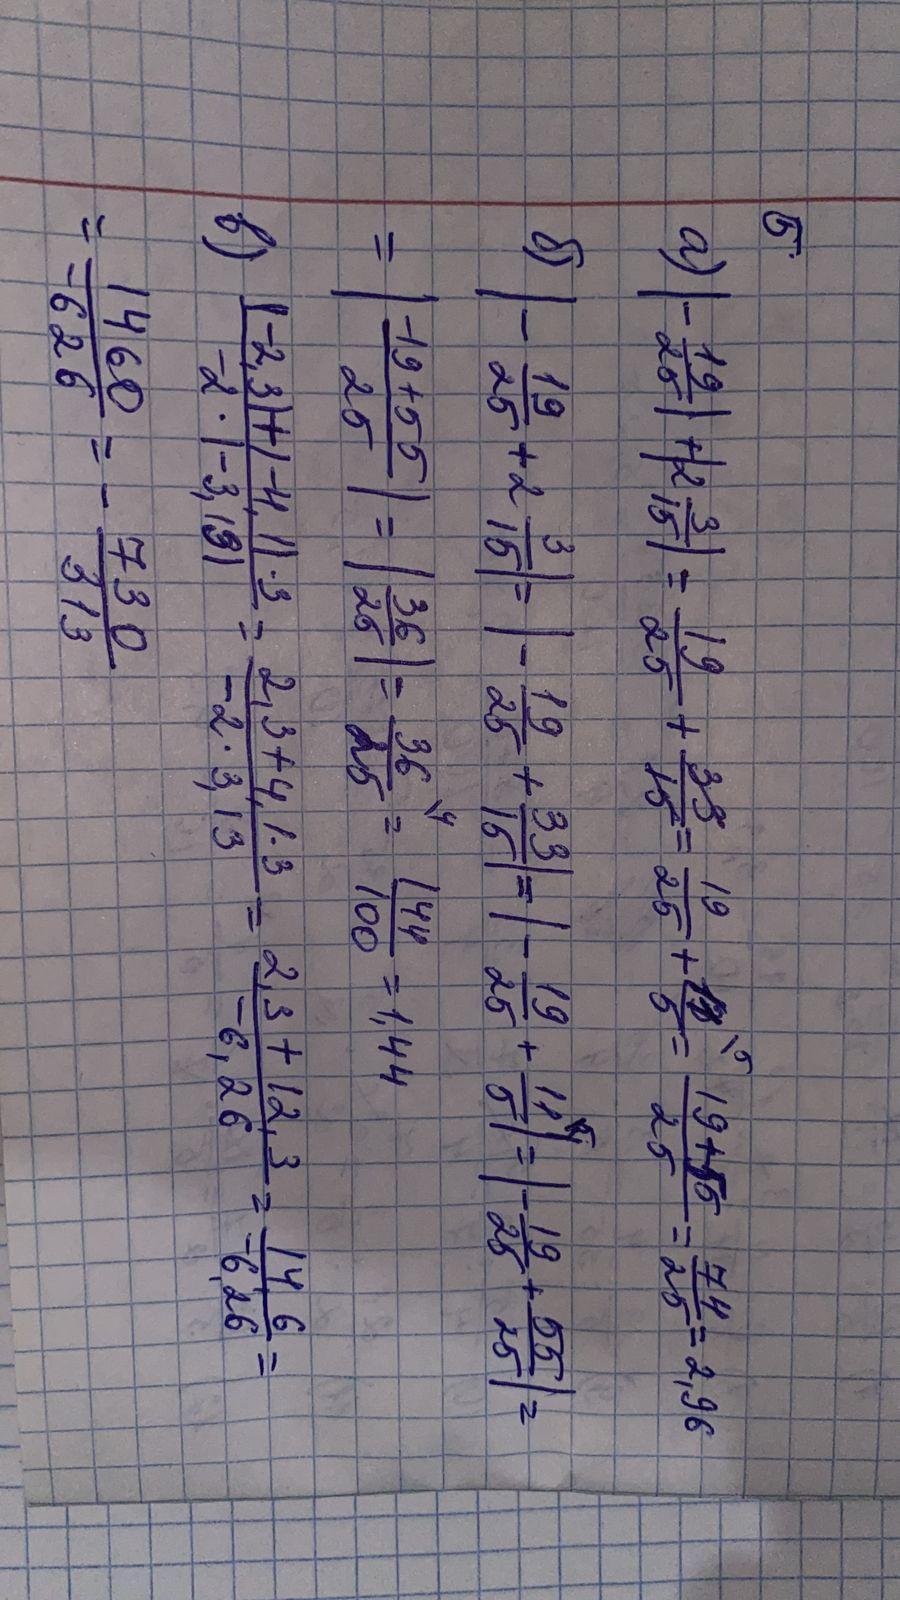 5
а) |-19/25| + |2 3/15| = 19/25 + 33/15 = 19/25 + 11/5 \5 = 19+55/25 = 74/25 = 2,96
б) |-19/25 + 2 3/15| = |-19/25 + 33/15| = |-19/25 + 11/5 \5| = |-19/25 + 55/25| =
= |-19+55/25| = |36/25| = 36/25 \4 = 144/100 = 1,44
в) |-2,3|+|-4,1|·3/-2·|-3,13| = 2,3+4,1·3/-2·3,13 = 2,3+12,3/-6,26 = 14,6/-6,26 =
= 1460/-626 = -730/313